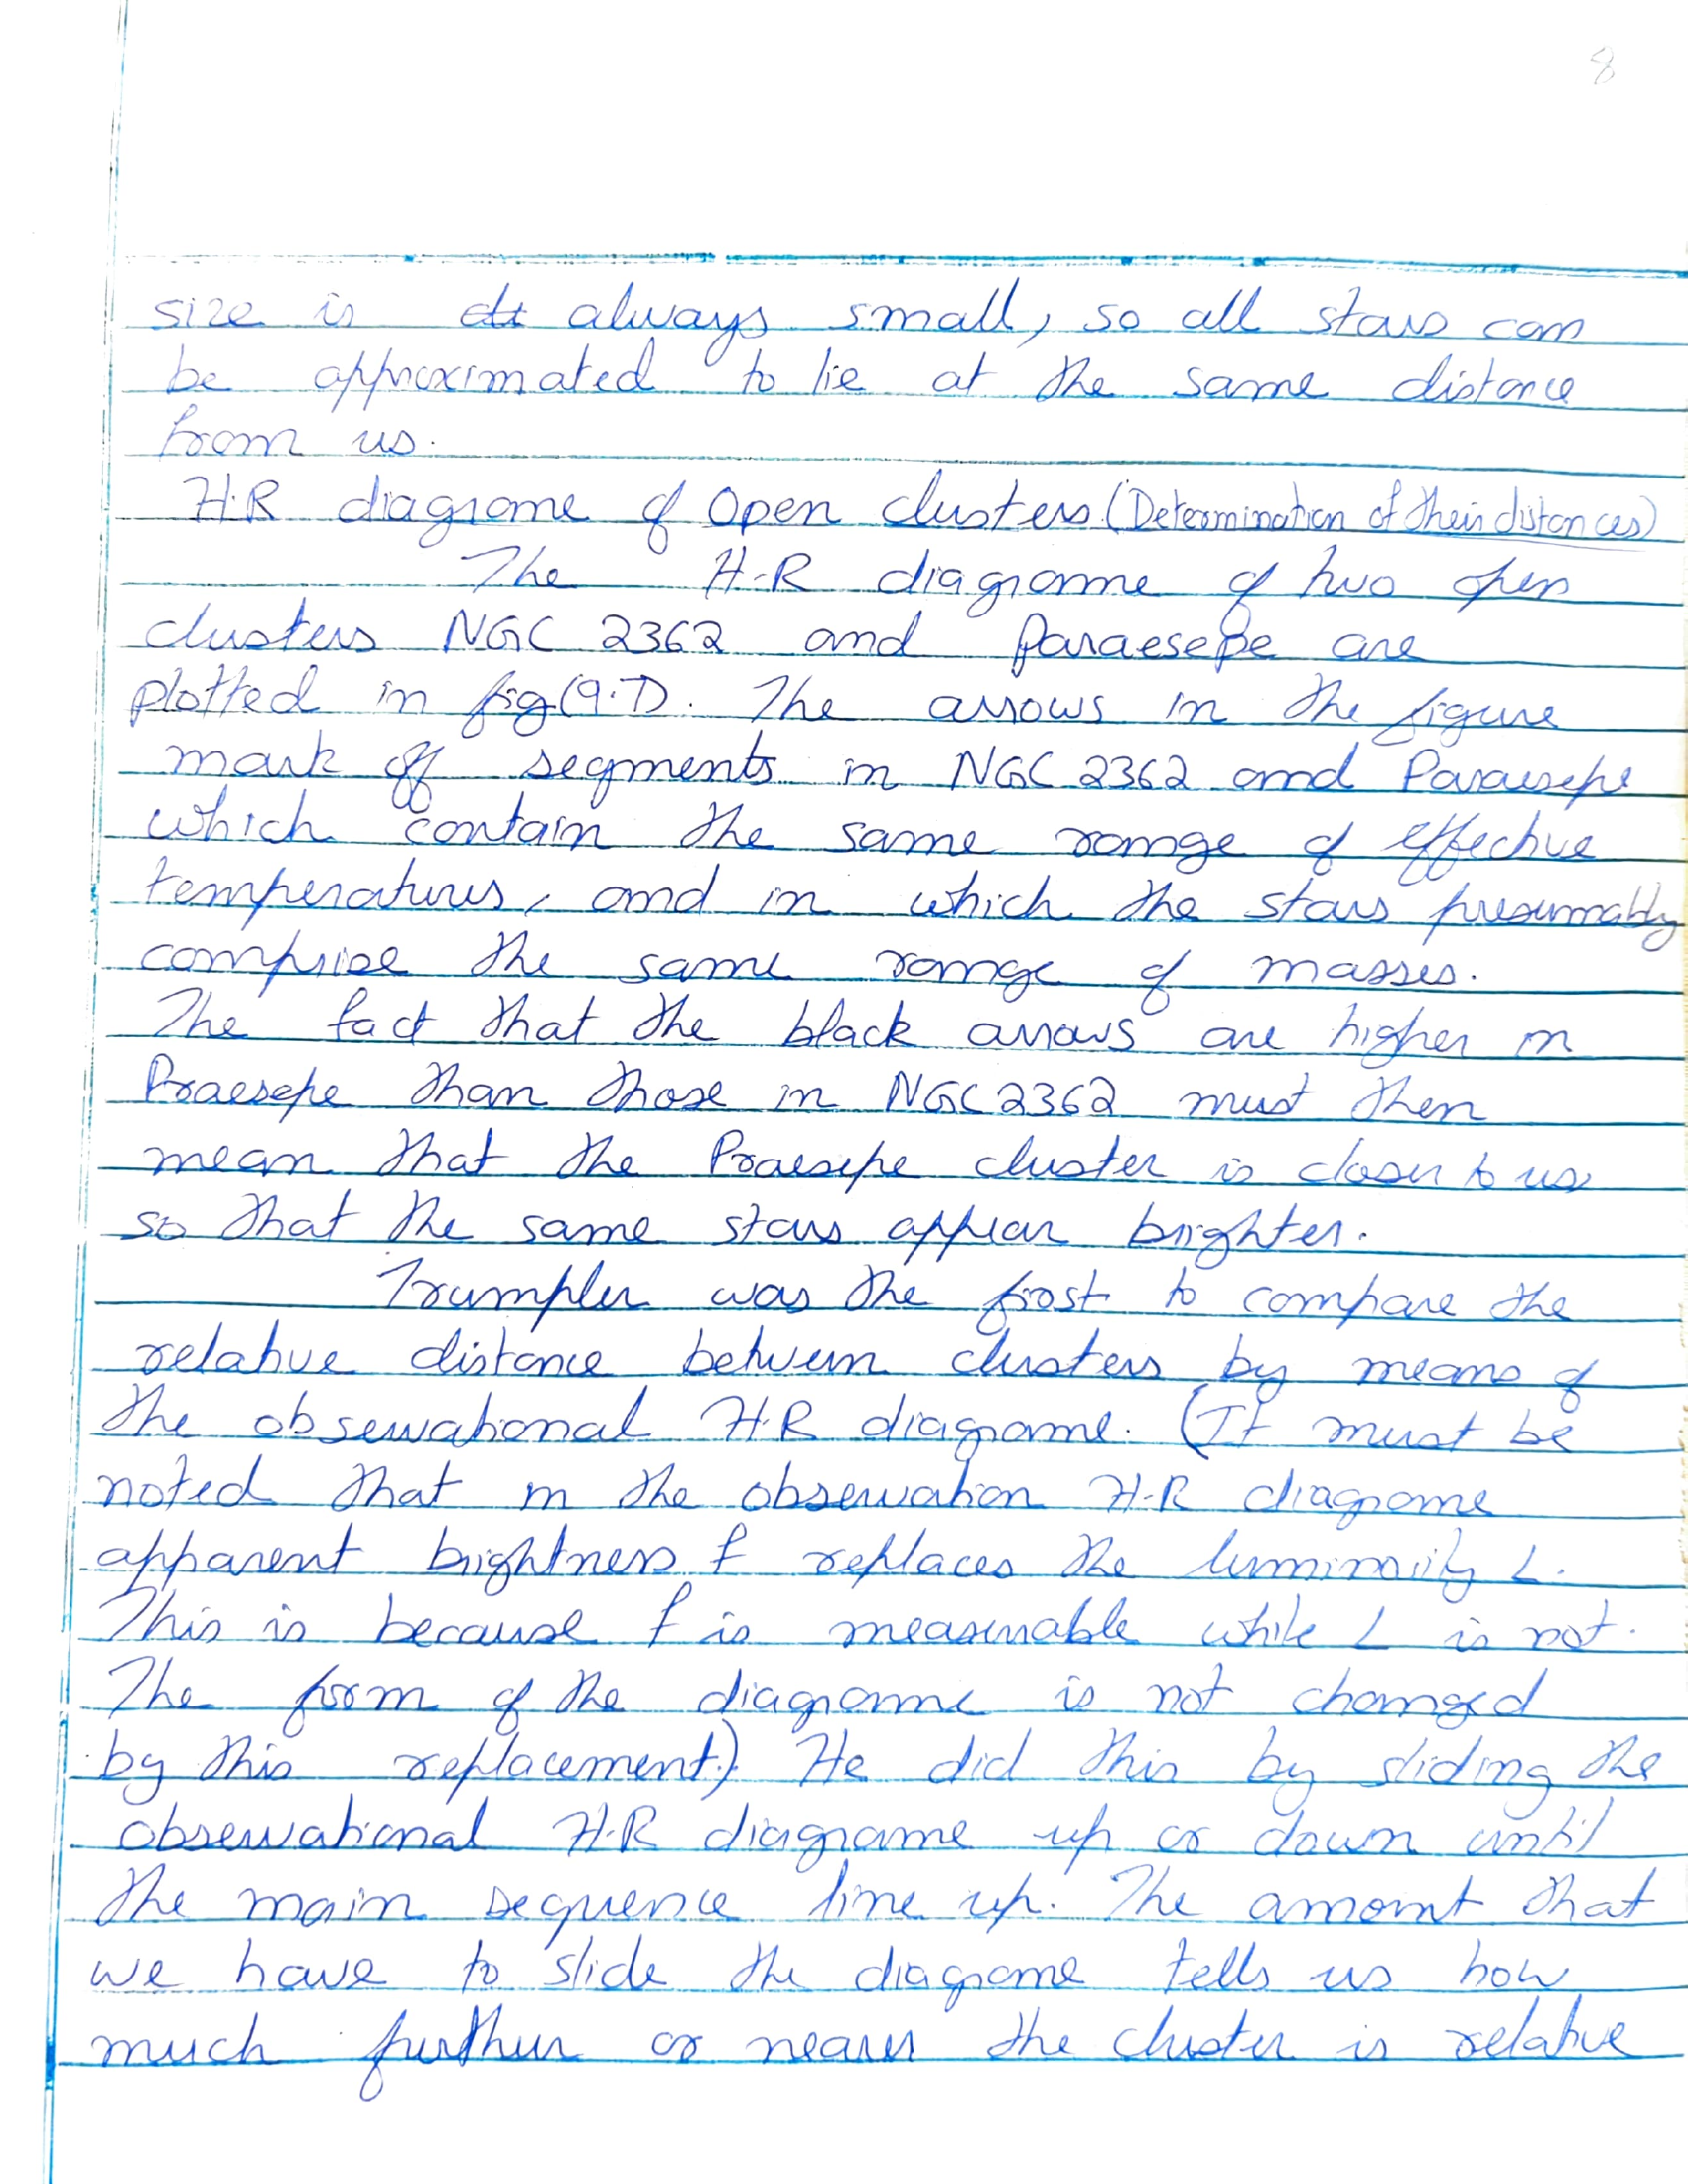 8
size is always small, so all stars can
be approximated to lie at the same distance
from us.
H.R diagrame of Open clusters (Determination of their distances)
The H-R diagrame of two open
clusters NGC 2362 and Paraesepe are
plotted in fig (9.7). The arrows in the figure
mark off segments in NGC 2362 and Paraesepe
which contain the same range of effective
temperatures, and in which the stars presumably
comprise the same range of masses.
The fact that the black arrows are higher in
Praesepe than those in NGC 2362 must then
mean that the Praesepe cluster is closer to us
so that the same stars appear brighter.
Trumpler was the first to compare the
relative distance between clusters by means of
the observational H.R diagrame. (It must be
noted that in the observation H-R diagrame
apparent brightness f replaces the luminosity L.
This is because f is measurable while L is not.
The form of the diagrame is not changed
by this replacement). He did this by sliding the
observational H.R diagrame up or down until
the main sequence line up. The amount that
we have to slide the diagrame tells us how
much further or nearer the cluster is relative